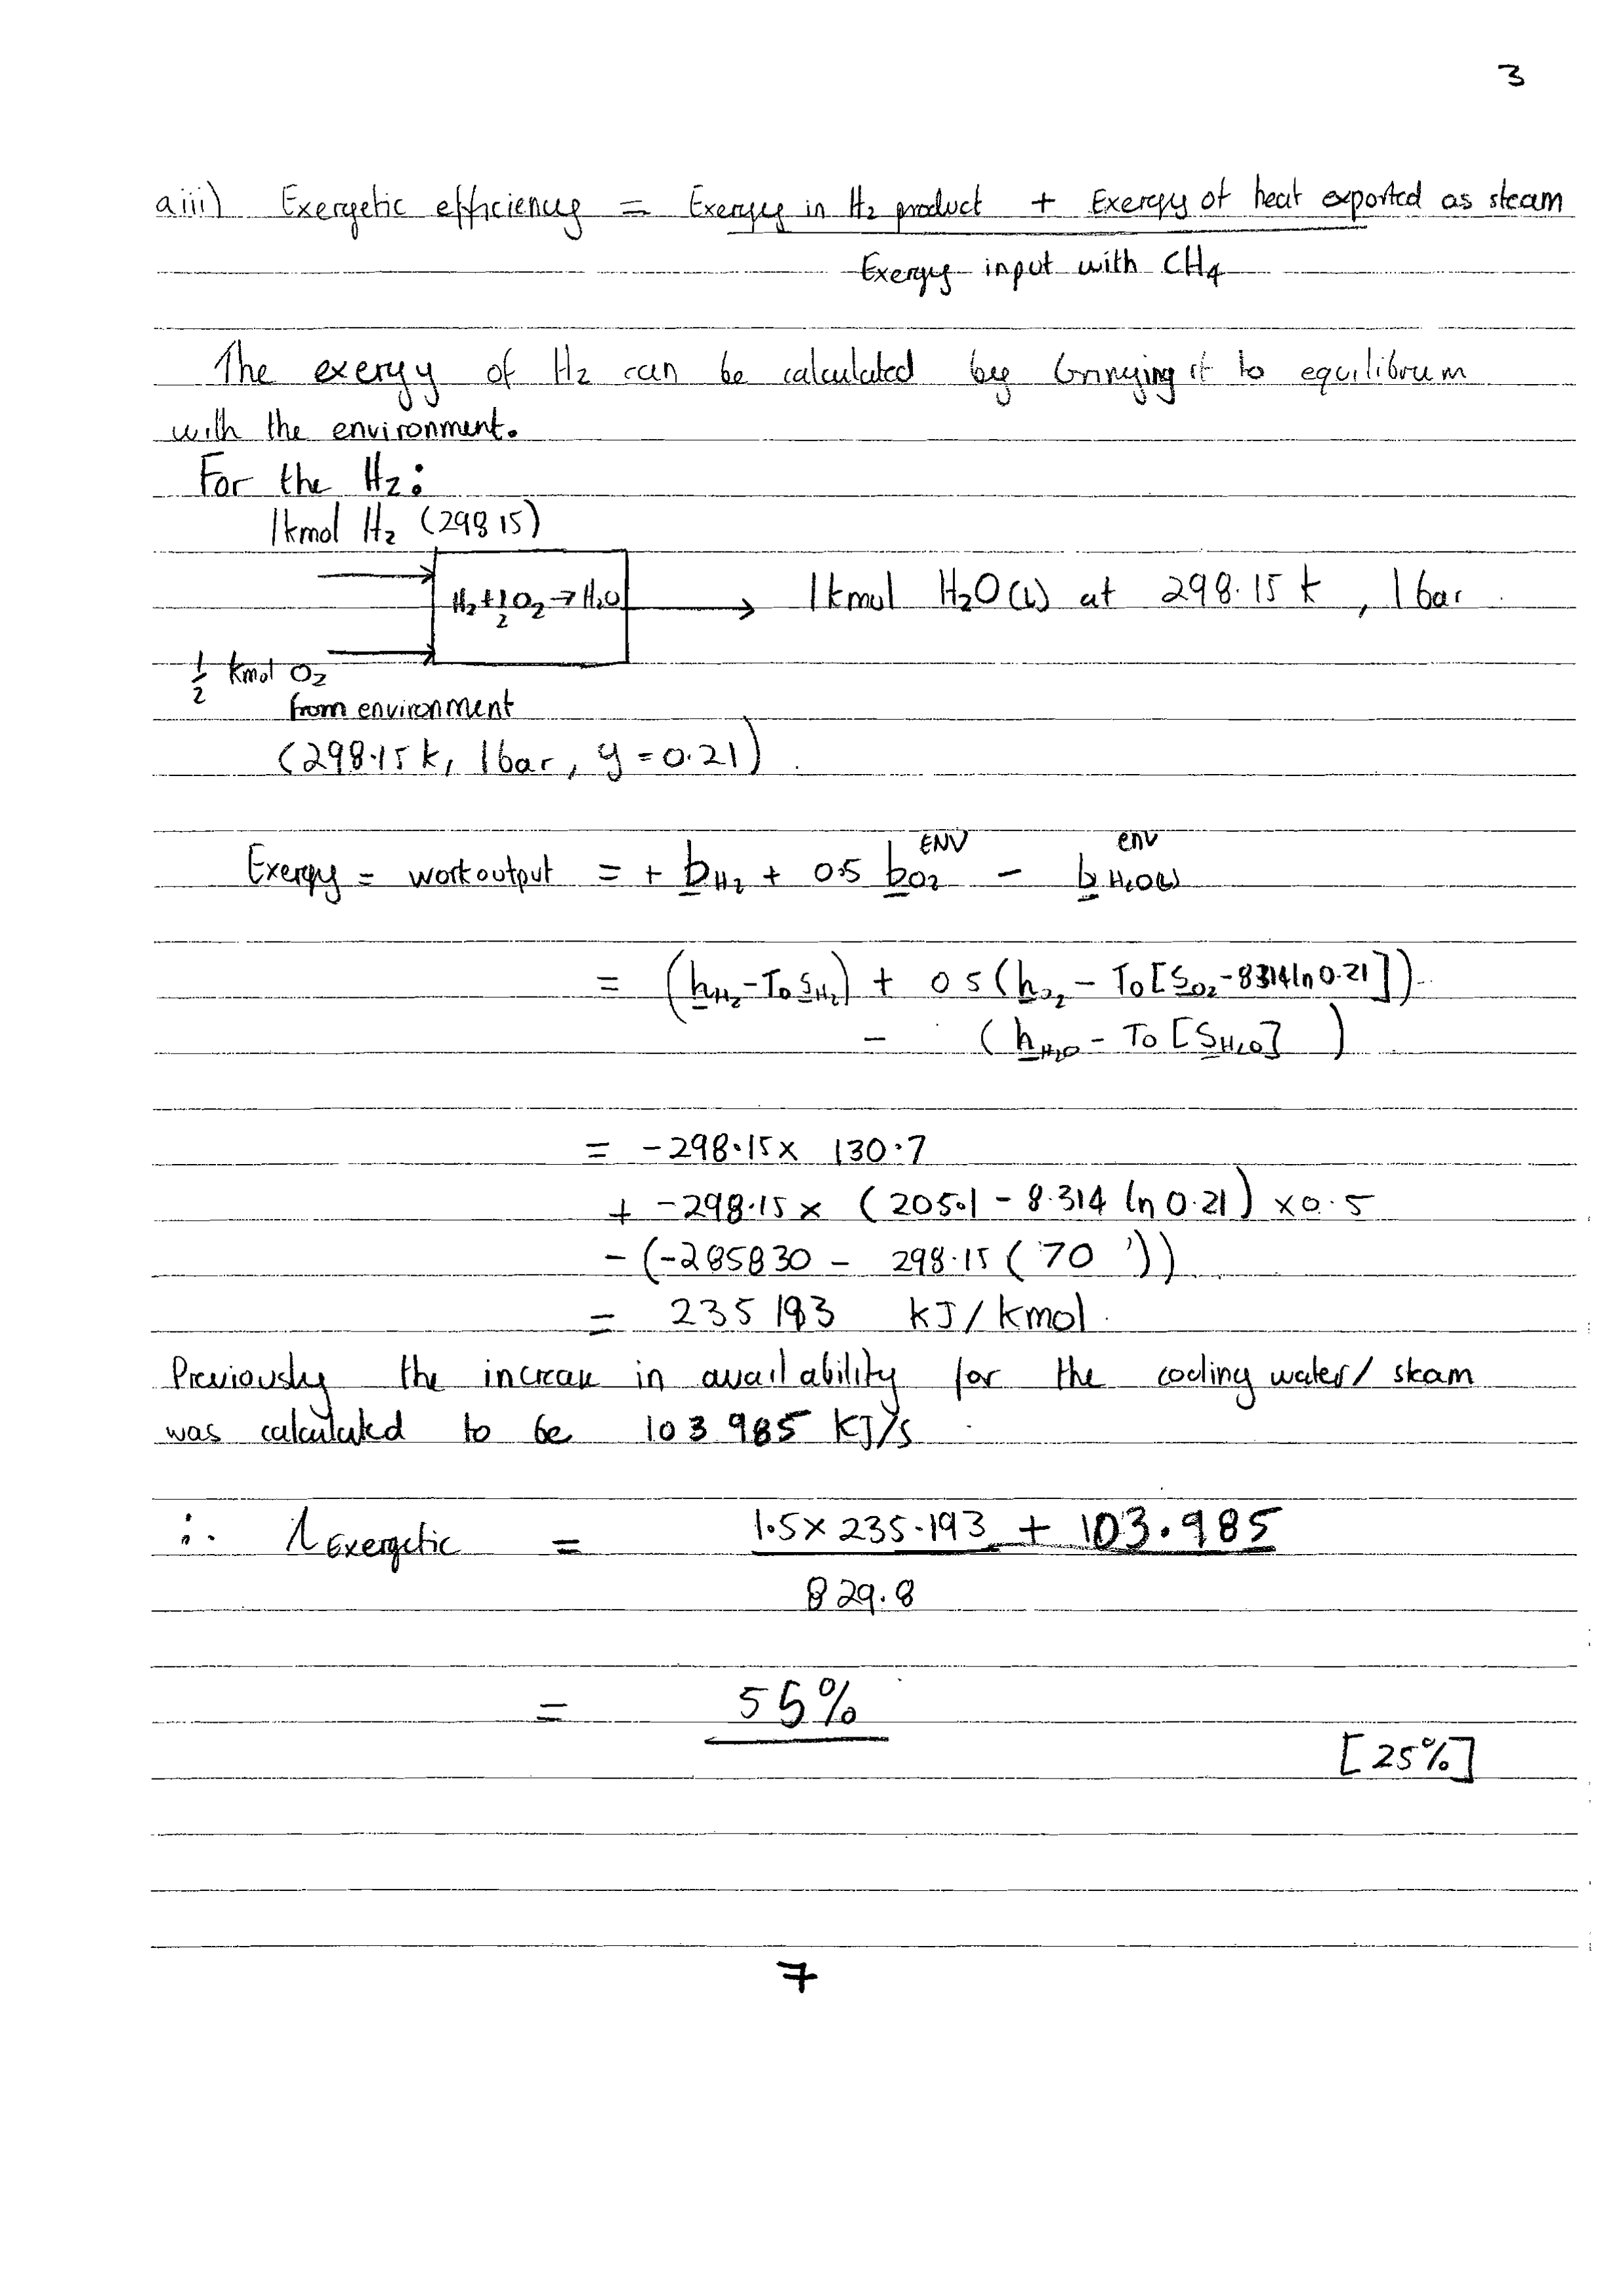 3
aiii) Exergetic efficiency = Exergy in H2 product + Exergy of heat exported as steam
Exergy input with CH4
The exergy of H2 can be calculated by bringing it to equilibrum
with the environment.
For the H2:
1kmol H2 (298 15)
H2+1/2O2→H2O
1kmol H2O(L) at 298.15 K, 1bar
1/2 kmol O2
from environment
(298.15k, 1bar, y=0.21)
Exergy = work output = + b H2 + 0.5 b O2 ENV - b H2O(L) env
= (hH2 - To SH2) + 0 5 (hO2 - To [SO2 - 8314 ln 0.21])
- (hH2O - To [SH2O] )
= -298.15 x 130.7
+ -298.15 x (205.1 - 8.314 ln 0.21) x 0.5
- (-285830 - 298.15 (70 ))
= 235 193 KJ/kmol
Previously the increase in availability for the cooling water/ steam
was calculated to be 103 985 KJ/s
∴ η Exergetic = 1.5 x 235.193 + 103.985
829.8
= 55%
[25%]
7